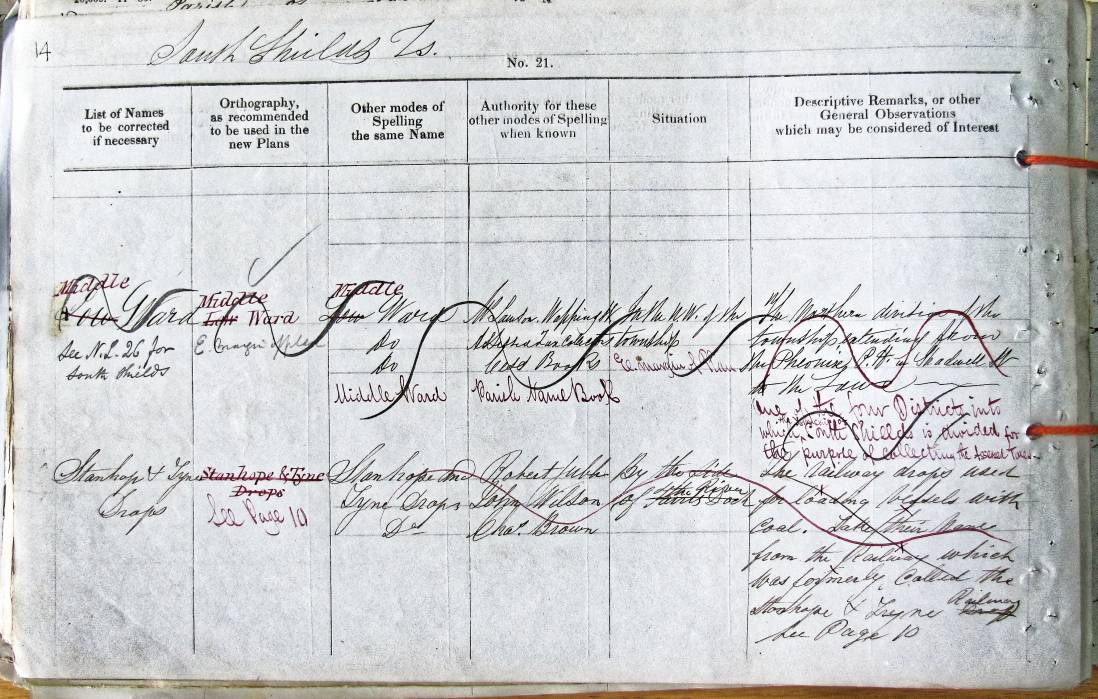 14
South Shields Ts.
No. 21.
List of Names
to be corrected
if necessary
Orthography,
as recommended
to be used in the
new Plans
Other modes of
Spelling
the same Name
Authority for these
other modes of Spelling
when known
Situation
Descriptive Remarks, or other
General Observations
which may be considered of Interest
Middle
Low Ward
See N.L. 26 for
South Shields
Middle
Low Ward
E. margin of plan
Middle
Low Ward
Do
Do
Middle Ward
Lawson Wapping St
Assessed Tax Collectors
Cess Books
Parish Name Book
In the N.W. of the
township
E. margin of Plan
The Northern division of the
township extending from
the Pheonix P.H. in Shadwell St
to the Lawe
One of the four Districts into
which the Township of South Shields is divided for
the purpose of collecting the Assessed Taxes
Stanhope & Tyne
Drops
Stanhope & Tyne
Drops
See Page 10
Stanhope and
Tyne Drops
Do
Robert Jubb
John Wilson
Chas. Brown
By the side
of the River
Dock
The Railway drops used
for loading vessels with
Coal. Take their Names
from the Railway which
was formerly Called the
Stanhope & Tyne Railway
See Page 10